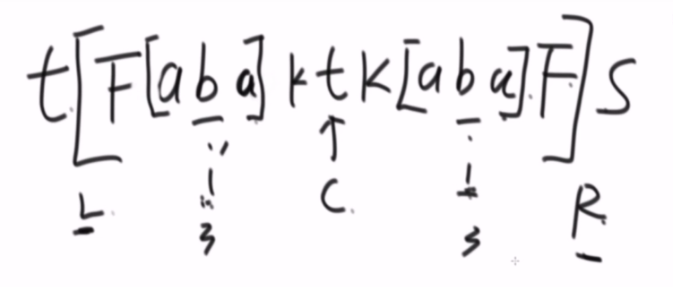 t[F[aba]ktk[aba]F]S
L i' ↑ i R
1 C 1
3 3